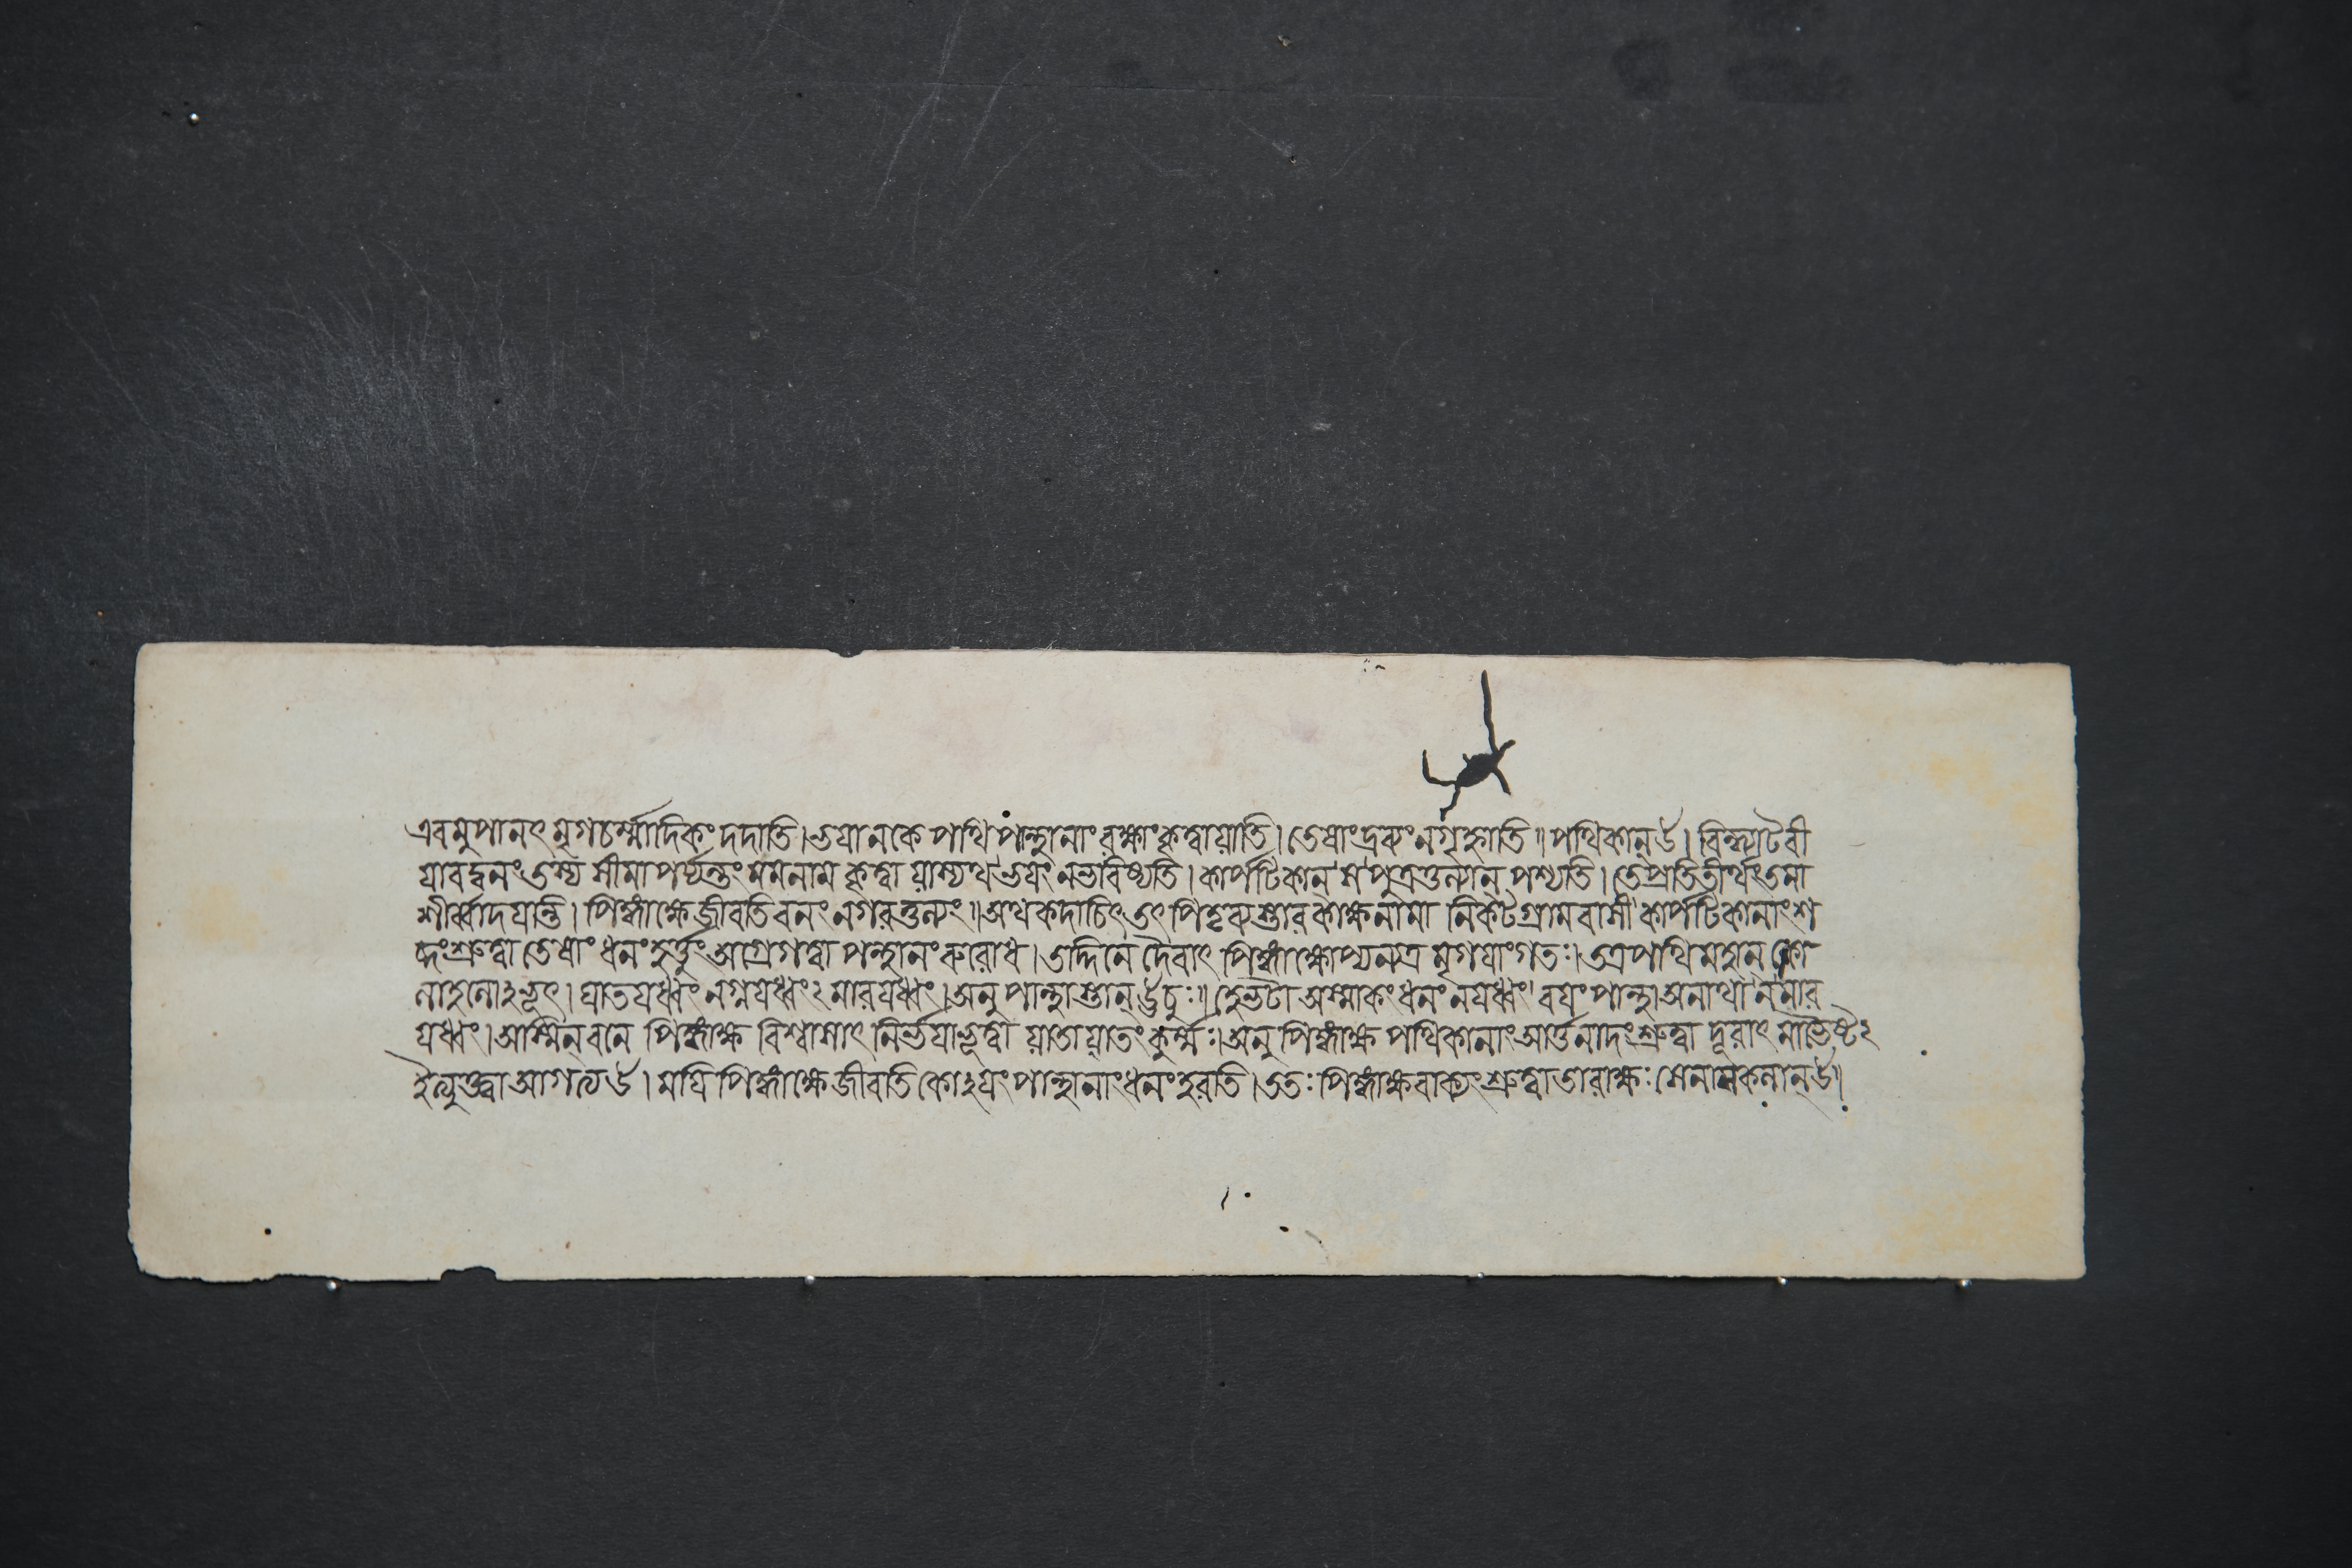 এবমুপানৎ মৃগচর্ম্মাদিকং দদাতি। ভয়ানকে পথি পান্থানাং রক্ষাং কৃত্বা য়াতি। তেষাং দ্রব্যং ন গৃহ্নাতি॥ পথিকান্ ঊ। বিন্ধ্যাটবী
য়াবদ্বনং তস্য সীমা পর্য্যন্তং মম নাম কৃত্বা য়াস্যথ ভয়ং ন ভবিষ্যতি। কার্পটিকান্ স পুত্রতুল্যান্ পশ্যতি। তে প্রতিতীর্থং তমা
শীর্ব্বাদয়ন্তি। পিঙ্গাক্ষে জীবতি বনং নগরতুল্যং॥ অথ কদাচিৎ তৎ পিতৃব্যস্তারকাক্ষনামা নিকটগ্রামবাসী কার্পটিকানাং শ
ব্দং শ্রুত্বা তেষাং ধনং হর্ত্তুং অগ্রে গত্বা পন্থানং রুরোধ। তদ্দিনে দৈবাৎ পিঙ্গাক্ষোপ্যন্যত্র মৃগয়াং গতঃ। তত্র পথি মহান্ কো
লাহলোঽভূৎ। ঘাতয়ধ্বং নগ্নয়ধ্বং ২ মারয়ধ্বং। অনু পান্থাস্তান্ ঊচুঃ॥ হে ভটা অস্মাকং ধনং নয়ধ্বং বয়ং পান্থা অনাথা ন মার
য়ধ্বং। অস্মিন্ বনে পিঙ্গাক্ষ বিশ্বাসাৎ নির্ভয়া ভূত্বা য়াতায়াতং কুর্ম্মঃ। অনু পিঙ্গাক্ষ পথিকানাং আর্ত্তনাদং শ্রুত্বা দূরাৎ মাভৈষ্ট ২
ইত্যুক্ত্বা আগত্য ঊ। ময়ি পিঙ্গাক্ষে জীবতি কোঽয়ং পান্থানাং ধনং হরতি। ততঃ পিঙ্গাক্ষবাক্যং শ্রুত্বা তারাক্ষঃ সেনা সকলান্ ঊ।